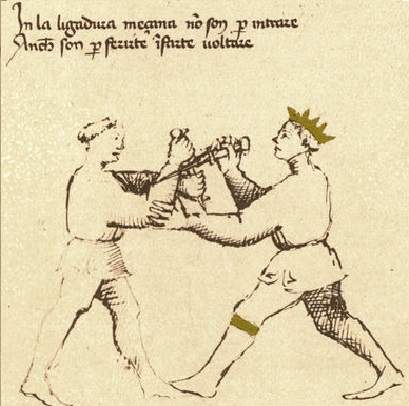 In la ligadura meçana nõ son ꝑ intrare
Anch son ꝑ ferirte ĩ parte uoltare